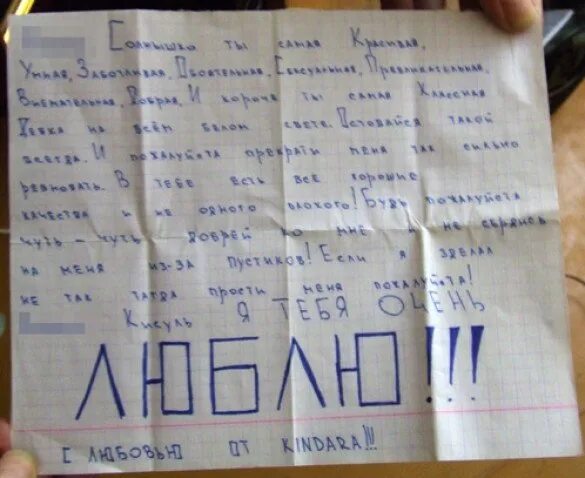 Солнышко ты самая Красивая,
Умная, Заботливая, Обоятельная, Сексуальная, Превликательная,
Внемательная, Добрая, И короче ты самая Классная
Девка на всём белом свете. Оставайся такой
всегда. И пожалуйста прекрати меня так сильно
ревновать. В тебе есть все хорошие
качества и не одного плохого! Будь пожалуйста
чуть-чуть добрей ко мне и не сердись
на меня из-за пустиков! Если я зделал
не так тагда прости меня пожалуйта!
Кисуль Я ТЕБЯ ОЧЕНЬ
ЛЮБЛЮ!!!
С ЛЮБОВЬЮ ОТ KINDARA!!!